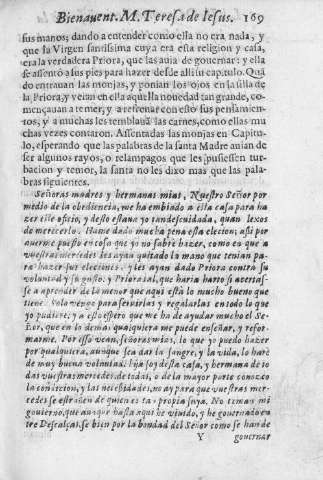 Bienauent. M. Teresa de Iesus. 169
sus manos; dando a entender como ella no era nada, y
que la Virgen santissima cuya era esta religion y casa,
era la verdadera Priora, que las auia de gouernar: y ella
se assentò a sus pies para hazer desde alli su capitulo. Quãdo
entrauan las monjas, y ponian los ojos en la silla de
la Priora, y veian en ella aquella nouedad tan grande, començauan
a temer, y a refrenar con esto sus pensamientos,
y a muchas les temblauã las carnes, como ellas muchas
vezes contaron. Assentadas las monjas en Capitulo,
esperando que las palabras de la santa Madre auian de
ser algunos rayos, o relampagos que les pusiessen turbacion
y temor, la santa no les dixo mas que las palabras
siguientes.
Señoras madres y hermanas mias, Nuestro Señor por
medio de la obediencia, me ha embiado a esta casa para hazer
este oficio, y desto estaua yo tan descuidada, quan lexos
de merecerlo. Hame dado mucha pena esta eleccion; assi por
auerme puesto en cosa que yo no sabrè hazer, como en que a
vuestras mercedes les ayan quitado la mano que tenian para
hazer sus elecciones, y les ayan dado Priora contra su
voluntad y su gusto, y Priora tal, que haria harto si acertasse
a aprender de la menor que aqui està lo mucho bueno que
tiene. Solo vengo para seruirlas y regalarlas en todo lo que
yo pudiere, y a esto espero que me ha de ayudar mucho el Señor,
que en lo demas qualquiera me puede enseñar, y reformarme.
Por esso vean, señoras mias, lo que yo puedo hazer
por qualquiera, aunque sea dar la sangre, y la vida, lo harè
de muy buena voluntad. Hija soy desta casa, y hermana de todas
vuestras mercedes, de todas, o de la mayor parte conozco
la condicion, y las necessidades, no ay para que vuestras mercedes
se estrañen de quien es tan propia suya. No teman mi
gouierno, que aunque hasta aqui he viuido, y he gouernado entre
Descalças, sè bien por la bondad del Señor como se han de
Y gouernar